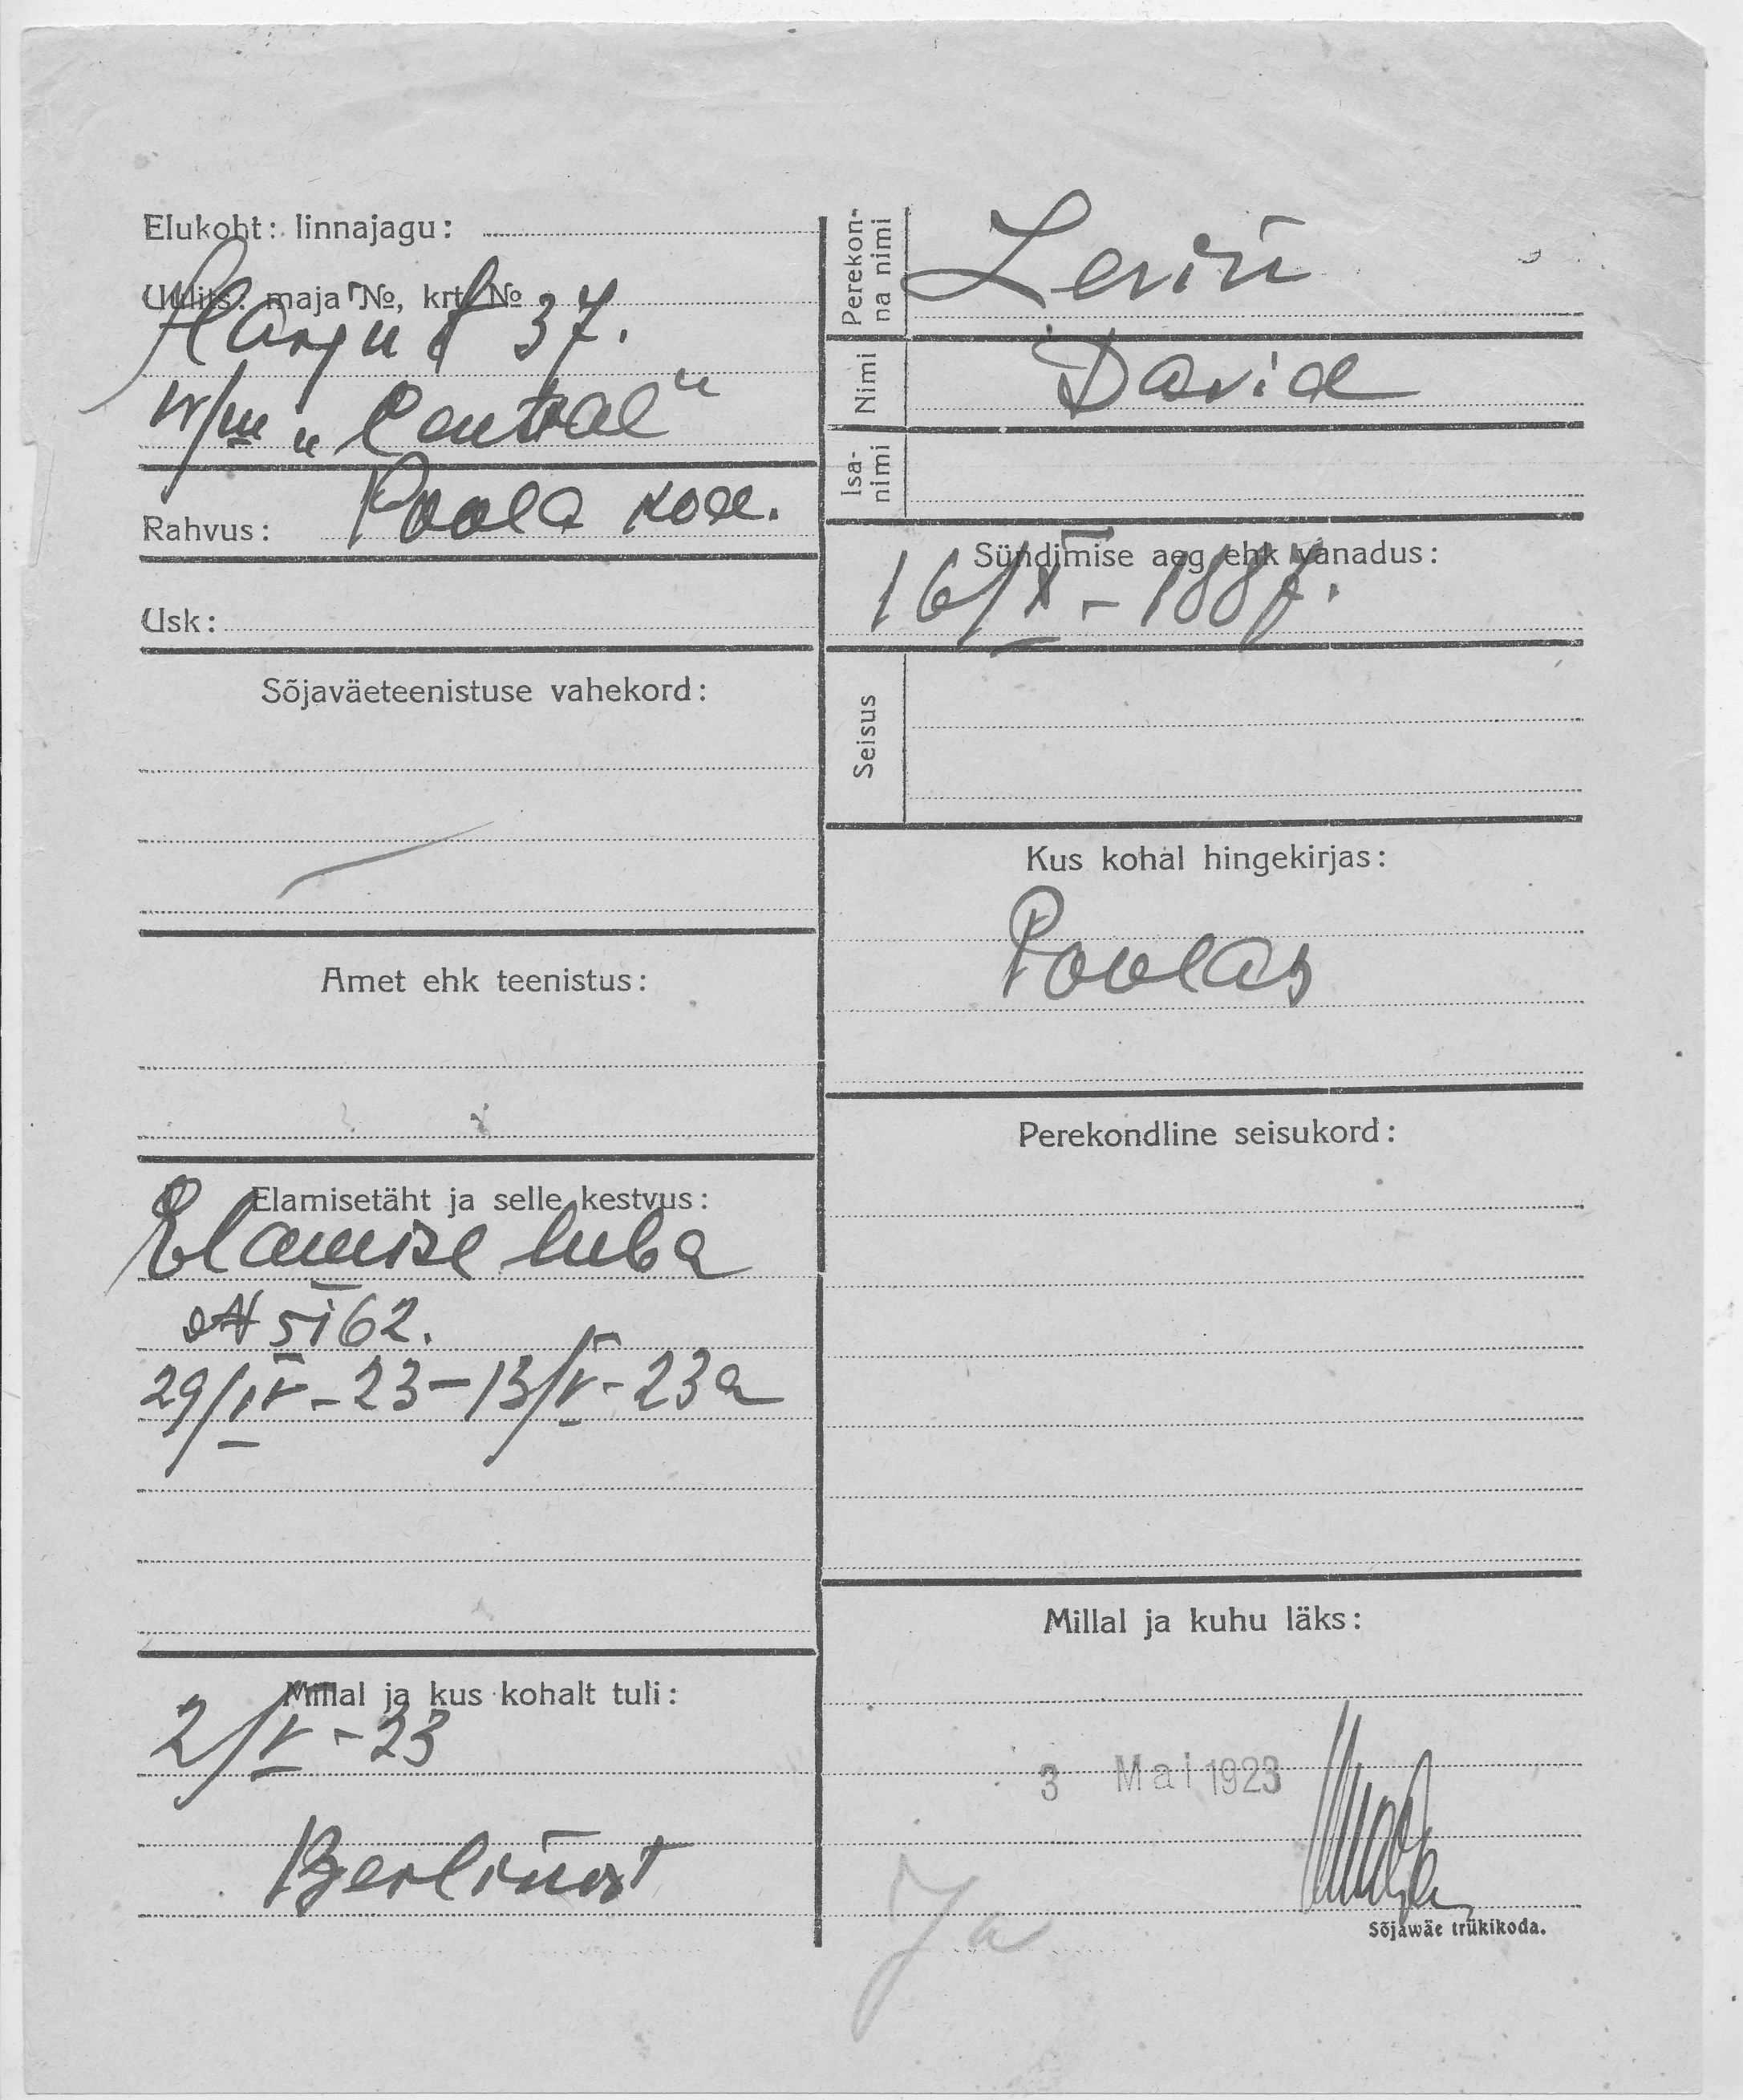 Elukoht: linnajagu:
Uulits: maja №, krt. №
Harju t 37.
v/m „Central“
Rahvus: Poola kod.
Usk:
Sõjaväeteenistuse vahekord:
Amet ehk teenistus:
Elamisetäht ja selle kestvus:
Elamise luba
№ 5162.
29/IV - 23 - 13/V - 23 a
Millal ja kus kohalt tuli:
2/V - 23
Berlinist
Perekon-
na nimi
Levin
Nimi
David
Isa-
nimi
Sündimise aeg ehk vanadus:
16/X - 1887.
Seisus
Kus kohal hingekirjas:
Poolas
Perekondline seisukord:
Millal ja kuhu läks:
3 Mai 1923
Ja
Sõjawäe trükikoda.